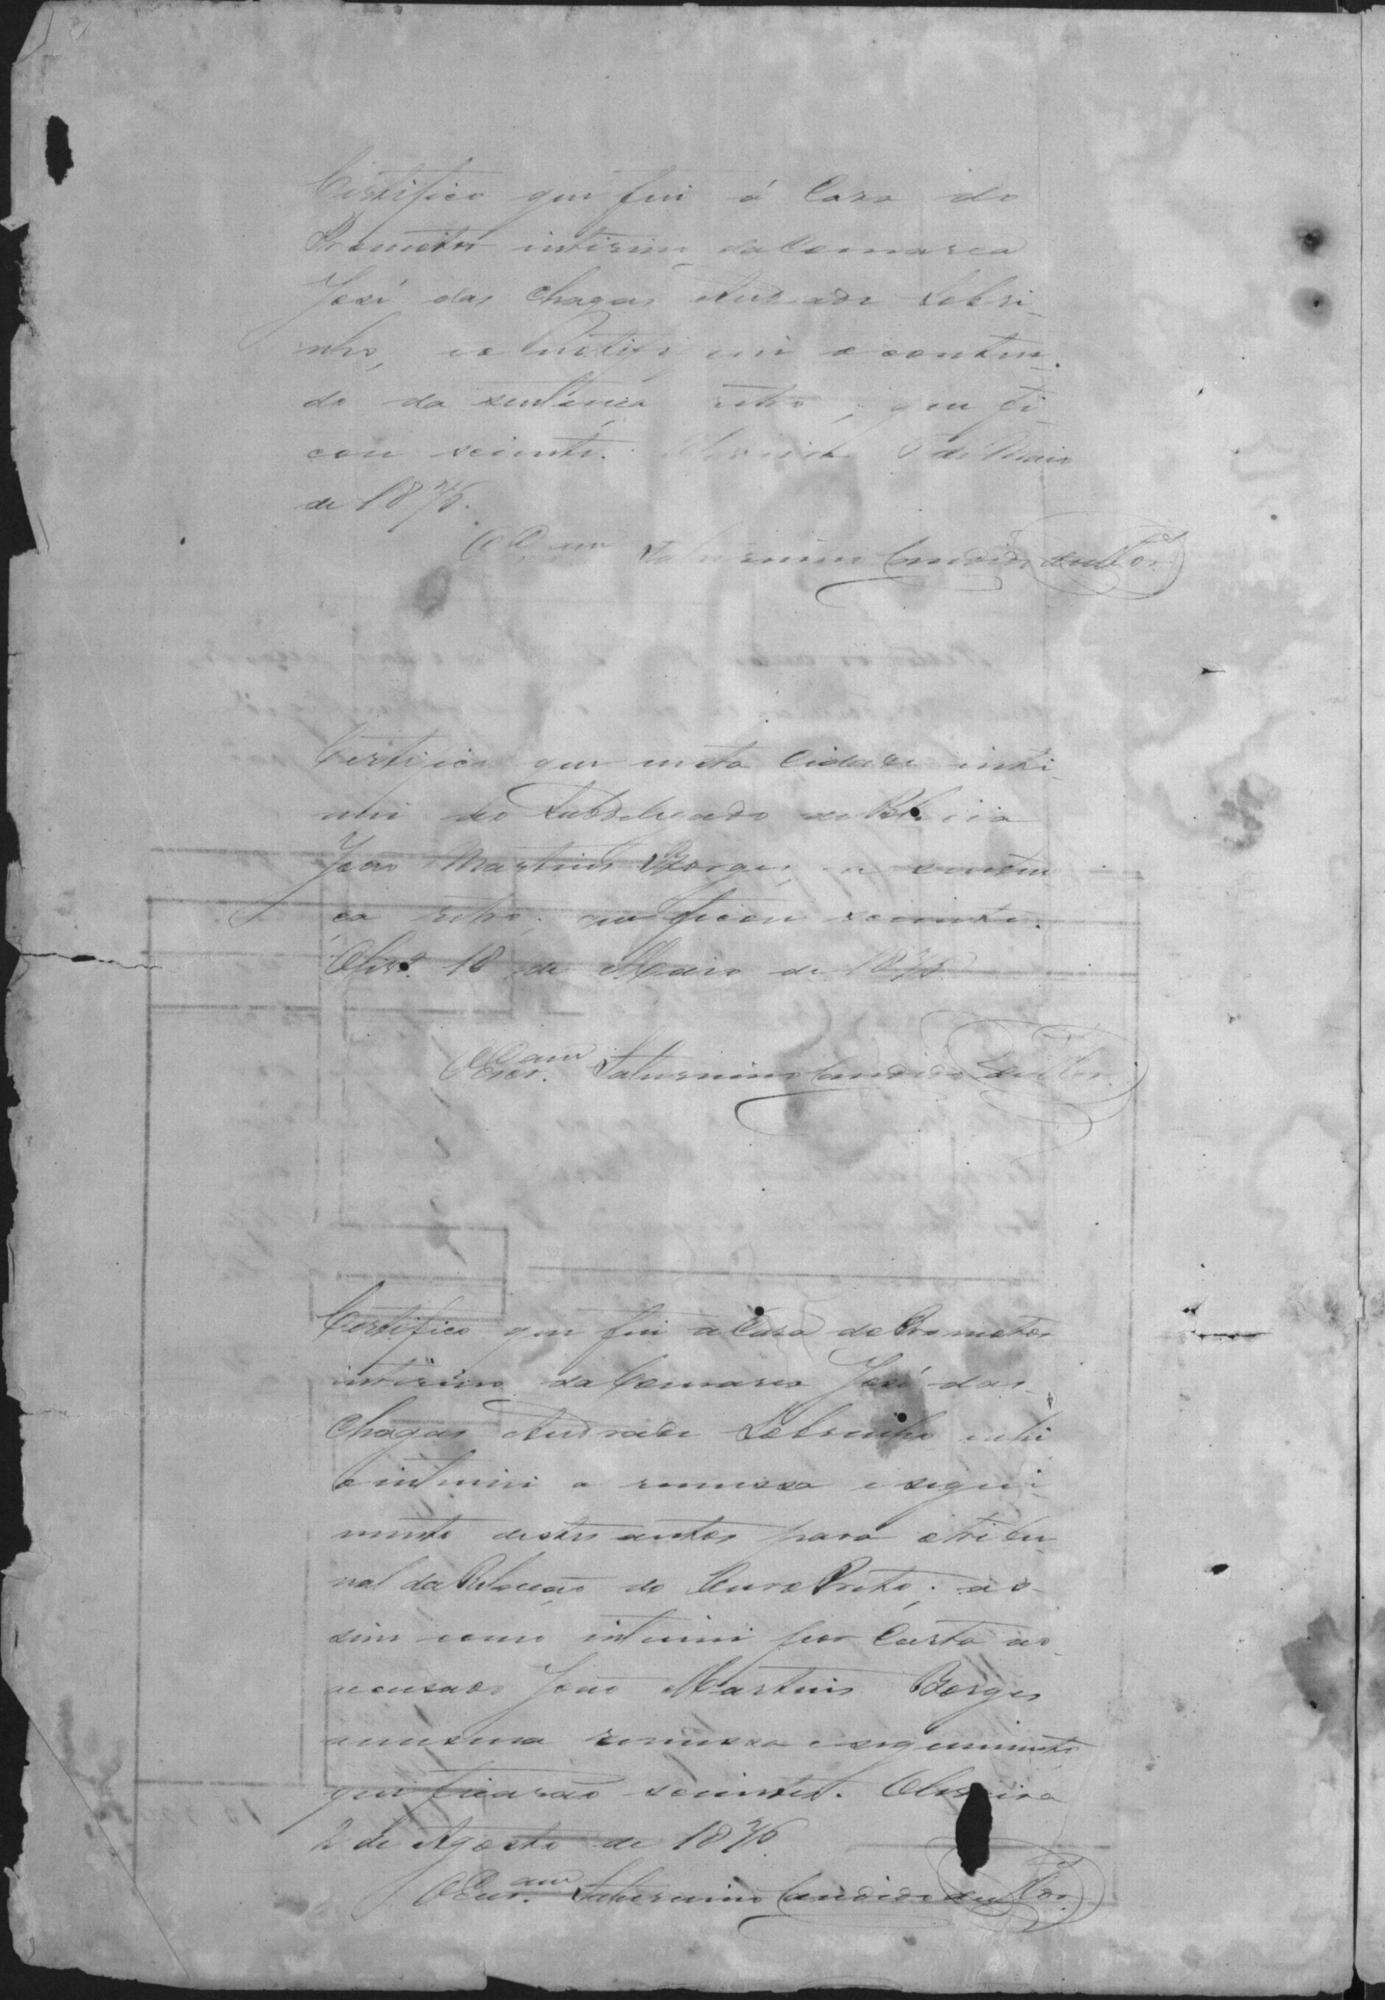 Certifico que fui á Casa do
Promotor interino da Comarca
José das Chagas Andrade Sobri-
nho, e lhe intimei o conteu-
do da sentença retro; que fi-
cou sciente. Oliveira de Maio
de 1876.
O Escr.am Saturnino Candido
Certifico que nesta Cidade inti-
mei ao Subdelegado de Policia
João Martins Borges a senten
ça retro; que ficou sciente.
Olivrª 18 de Maio de 1876
O Escr.am Saturnino Candido
Certifico que fui a Casa do Promotor
interino da Comarca José das
Chagas Andrade Sobrinho e ahi
o intimei a remessa e segui-
mento destes autos para o tribu-
nal da Relação do Ouro Preto; as-
sim como intimei por Carta ao
accusado João Martins Borges
a mesma remessa e seguimento
que ficarão scientes. Oliveira
2 de Agosto de 1876.
O Escr.am Saturnino Candido